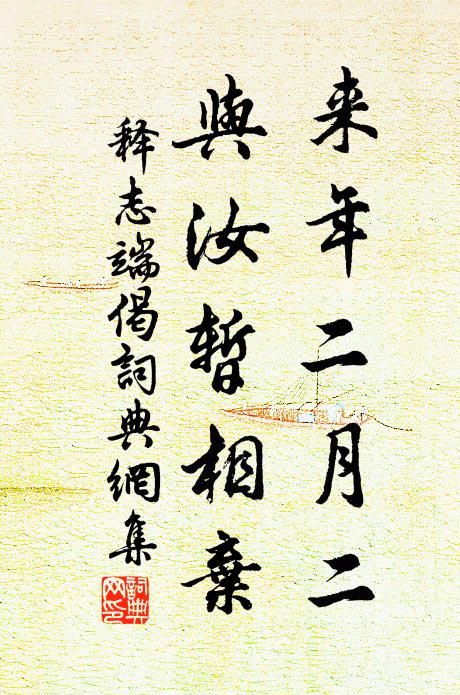 来年二月二
與汝暫相棄
释志端偈詞典網集
詞典
网印